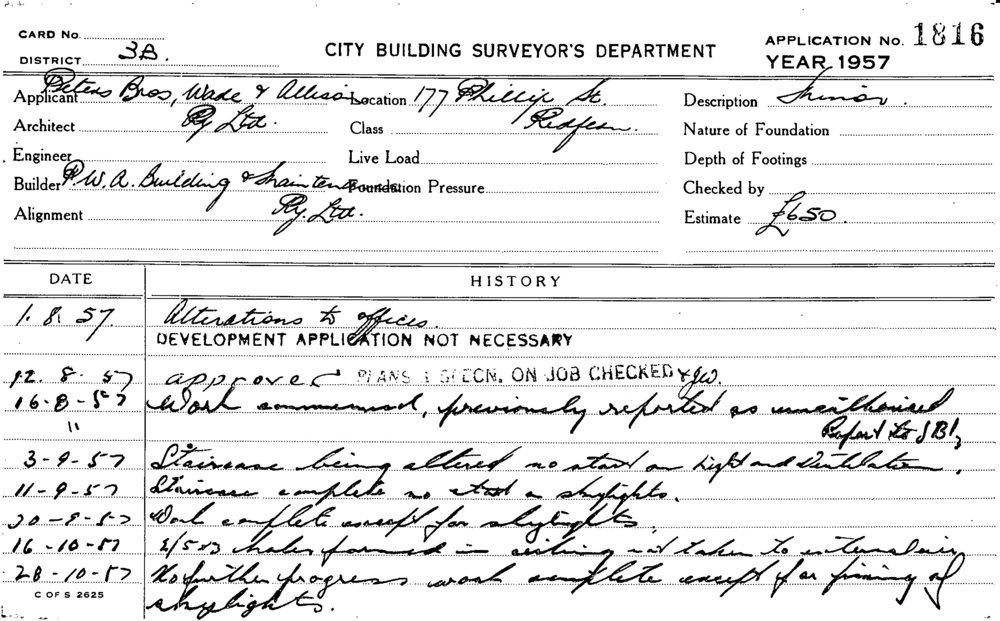 CARD No.
DISTRICT 3B.
CITY BUILDING SURVEYOR'S DEPARTMENT
APPLICATION No. 1816
YEAR 1957
Applicant Peters Bros, Wade & Allison Location 177 Phillip St. Description Minor.
Architect Pty Ltd. Class Redfern. Nature of Foundation
Engineer Live Load Depth of Footings
Builder P.W.A. Building & Maintenance Foundation Pressure Checked by
Alignment Pty. Ltd. Estimate £650.
DATE HISTORY
1. 8. 57. Alterations to offices.
DEVELOPMENT APPLICATION NOT NECESSARY
12. 8. 57 approved PLANS & SPECN. ON JOB CHECKED
16-8-57 Work commenced, previously reported as unauthorised
" Report to
3-9-57 Staircase being altered no start on Light and Ventilation.
11-9-57 Staircase complete no start on skylights.
20-9-57 Work complete except for skylights.
16-10-57 holes formed in ceiling not taken to external air
28-10-57 No further progress work complete except for fixing of
C OF S 2625
skylights.